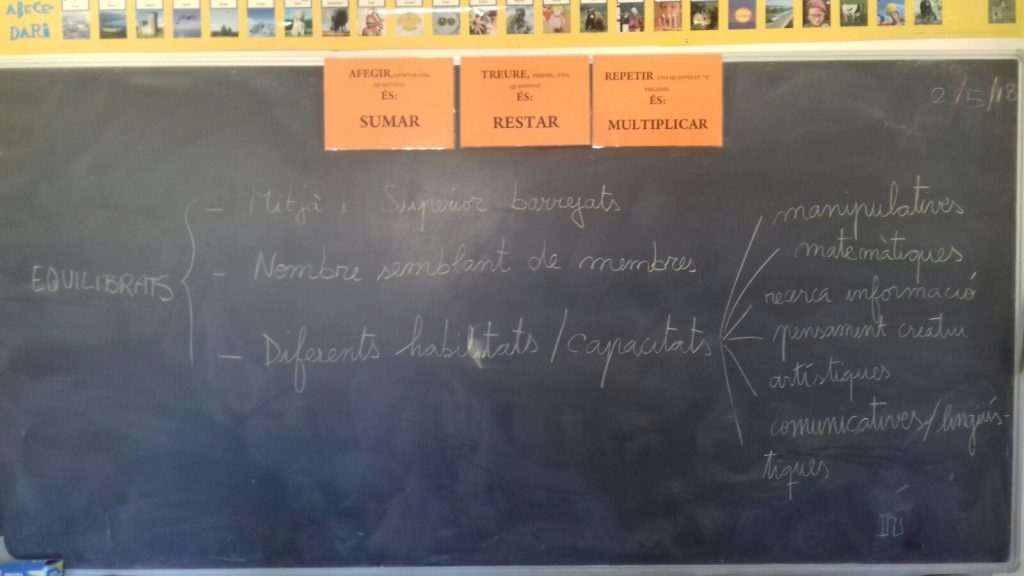 ABECE-
DARI
AFEGIR, AJUNTAR UNA
QUANTITAT
ÉS:
SUMAR
TREURE, PERDRE... UNA
QUANTITAT
ÉS:
RESTAR
REPETIR UNA QUANTITAT "X"
VEGADES
ÉS:
MULTIPLICAR
2/5/18
EQUILIBRATS
- Mitjà i Superior barrejats
- Nombre semblant de membres
- Diferents habilitats/capacitats
manipulatives
matemàtiques
recerca informació
pensament creatiu
artístiques
comunicatives/lingüís-
tiques